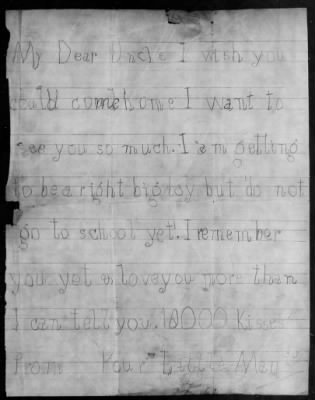 My Dear Uncle I wish you
could comehome I want to
see you so much. I am getting
to be a right big boy but do not
go to school yet. I remember
you yet & love you more than
I can tell you. 10000 Kisses
From Your "Little Man"